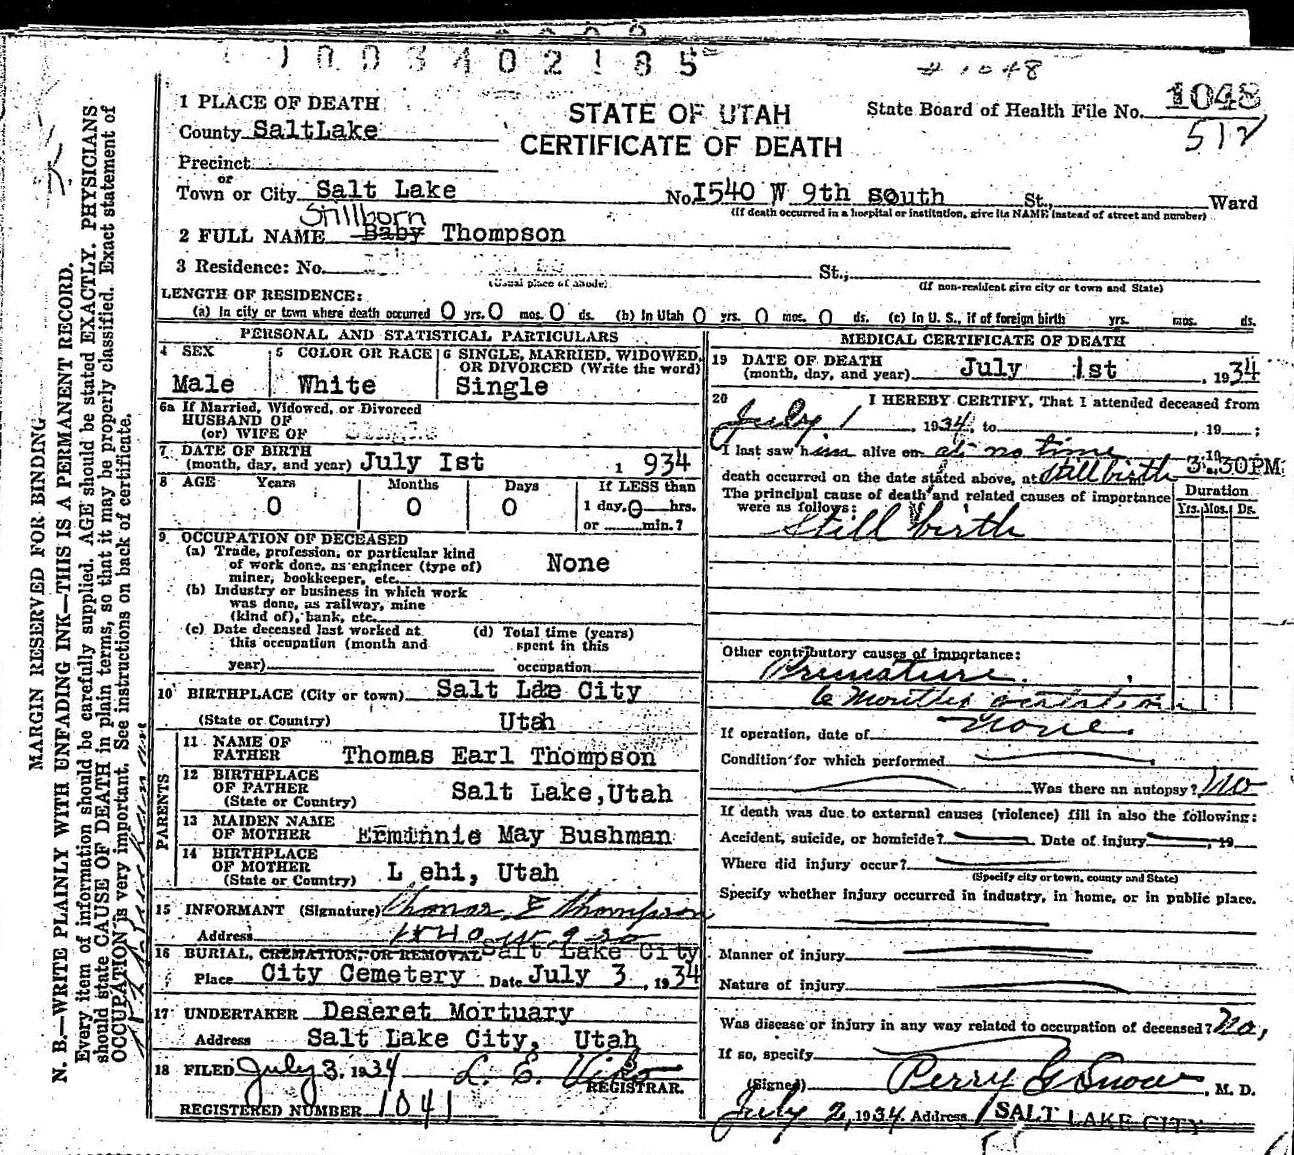 1003402185
# 1048
1 PLACE OF DEATH
STATE OF UTAH
State Board of Health File No. 1048
County SaltLake
CERTIFICATE OF DEATH
512
Precinct
or
Town or City Salt Lake No. 1540 W 9th south St., Ward
(If death occurred in a hospital or institution, give its NAME instead of street and number)
Stillborn
2 FULL NAME Baby Thompson
3 Residence: No. St.,
(Usual place of abode) (If non-resident give city or town and State)
LENGTH OF RESIDENCE:
(a) In city or town where death occurred 0 yrs. 0 mos. 0 ds. (b) In Utah 0 yrs. 0 mos. 0 ds. (c) In U. S., if of foreign birth yrs. mos. ds.
PERSONAL AND STATISTICAL PARTICULARS
4 SEX
Male
5 COLOR OR RACE
White
6 SINGLE, MARRIED, WIDOWED,
OR DIVORCED (Write the word)
Single
6a If Married, Widowed, or Divorced
HUSBAND OF
(or) WIFE OF
7 DATE OF BIRTH
(month, day, and year) July Ist 1 934
8 AGE Years Months Days If LESS than
0 0 0 1 day, 0 hrs.
or min.?
9 OCCUPATION OF DECEASED
(a) Trade, profession, or particular kind
of work done, as engineer (type of)
miner, bookkeeper, etc. None
(b) Industry or business in which work
was done, as railway, mine
(kind of), bank, etc.
(c) Date deceased last worked at
this occupation (month and
year)
(d) Total time (years)
spent in this
occupation
10 BIRTHPLACE (City or town) Salt Lae City
(State or Country) Utah
PARENTS
11 NAME OF
FATHER Thomas Earl Thompson
12 BIRTHPLACE
OF FATHER Salt Lake, Utah
(State or Country)
13 MAIDEN NAME
OF MOTHER Erminnie May Bushman
14 BIRTHPLACE
OF MOTHER L ehi, Utah
(State or Country)
15 INFORMANT (Signature) Thomas E Thompson
Address 1540 W 9 so
16 BURIAL, CREMATION, OR REMOVAL Salt Lake City
Place City Cemetery Date July 3, 1934
17 UNDERTAKER Deseret Mortuary
Address Salt Lake City, Utah
18 FILED July 3. 1934 L. E.
REGISTRAR.
REGISTERED NUMBER 1041
MEDICAL CERTIFICATE OF DEATH
19 DATE OF DEATH
(month, day, and year) July 1st, 1934
20 I HEREBY CERTIFY, That I attended deceased from
July 1, 1934, to , 19 ;
I last saw him alive on at no time 19
death occurred on the date stated above, at still birth 3:30PM
The principal cause of death and related causes of importance
were as follows:
Duration
Yrs. Mos. Ds.
Still birth
Other contributory causes of importance:
Premature
6 months
If operation, date of None.
Condition for which performed
Was there an autopsy? No
If death was due to external causes (violence) fill in also the following:
Accident, suicide, or homicide? Date of injury , 19
Where did injury occur?
(Specify city or town, county and State)
Specify whether injury occurred in industry, in home, or in public place.
Manner of injury
Nature of injury
Was disease or injury in any way related to occupation of deceased? No,
If so, specify
(Signed) Perry G Snow, M. D.
July 2, 1934 Address SALT LAKE CITY
MARGIN RESERVED FOR BINDING
N. B.—WRITE PLAINLY WITH UNFADING INK—THIS IS A PERMANENT RECORD.
Every item of information should be carefully supplied. AGE should be stated EXACTLY. PHYSICIANS
should state CAUSE OF DEATH in plain terms, so that it may be properly classified. Exact statement of
OCCUPATION is very important. See instructions on back of certificate.